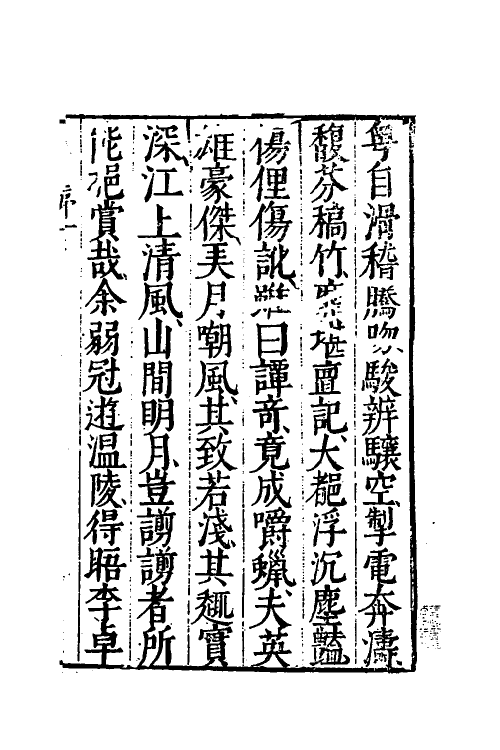 粤自滑稽騰吻駿辨驤空掣電奔濤
馥芬稿竹堪亶記大都浮沉塵豔
傷俚傷訛雖曰譚竒竟成嚼蠟夫英
雄豪傑美月嘲風其致若淺其趣寔
深江上清風山間明月豈謭謭者所
能挹賞哉余弱冠遊溫陵得晤李卓
序一